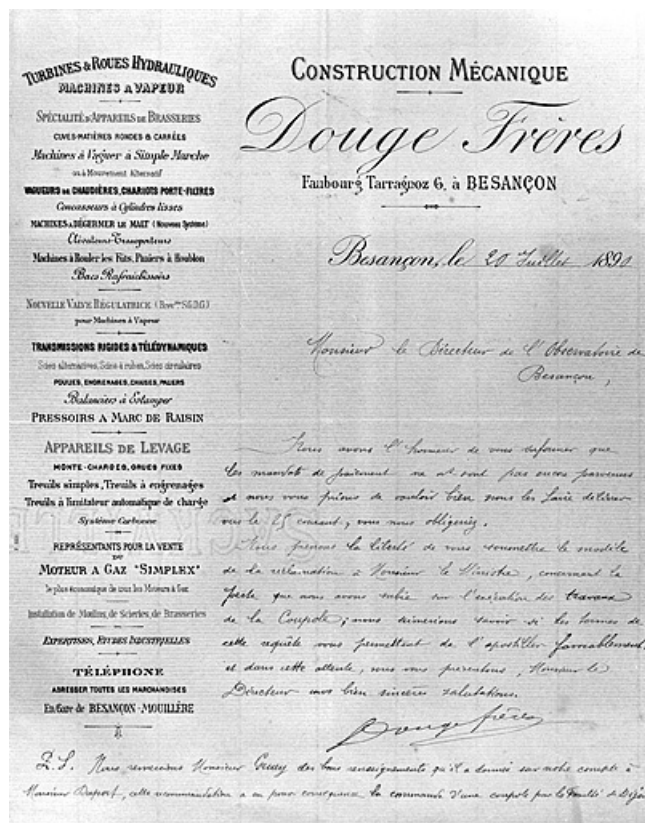 TURBINES & ROUES HYDRAULIQUES
MACHINES A VAPEUR
SPÉCIALITÉ D'APPAREILS DE BRASSERIES
CUVES-MATIÈRES RONDES & CARRÉES
Machines à Vaguer à Simple Marche
ou à Mouvement Alternatif
VAGUEURS DE CHAUDIÈRES, CHARIOTS PORTE-FILTRES
Concasseurs à Cylindres lisses
MACHINES A DÉGERMER LE MALT (Nouveau Système)
Elévateurs-Transporteurs
Machines à Rouler les Fûts, Paniers à Houblon
Bacs Rafraichissoirs
NOUVELLE VALVE RÉGULATRICE (Brev.tée S.G.D.G)
pour Machines à Vapeur
TRANSMISSIONS RIGIDES & TÉLÉDYNAMIQUES
Scies alternatives, Scies à ruban, Scies circulaires
POULIES, ENGRENAGES, CHAISES, PALIERS
Balanciers à Estamper
PRESSOIRS A MARC DE RAISIN
APPAREILS DE LEVAGE
MONTE-CHARGES, GRUES FIXES
Treuils simples, Treuils à engrenages
Treuils à limitateur automatique de charge
Système
REPRÉSENTANTS POUR LA VENTE
DU
MOTEUR A GAZ "SIMPLEX"
le plus économique de tous les Moteurs à Gaz
Installation de Moulins, de Scieries, de Brasseries
EXPERTISES, ETUDES INDUSTRIELLES
TÉLÉPHONE
ADRESSER TOUTES LES MARCHANDISES
En Gare de BESANÇON-MOUILLÈRE
CONSTRUCTION MÉCANIQUE
Douge Frères
Faubourg Tarragnoz 6, à BESANÇON
Besançon, le 20 Juillet 1890
Monsieur le Directeur de l'Observatoire de
Besançon,
Nous avons l'honneur de vous informer que
les mandats de paiement ne sont pas encore parvenus
et nous vous prions de vouloir bien nous les faire délivrer
vers le 25 courant, vous nous obligeriez.
Nous prenons la liberté de vous soumettre le modèle
de la réclamation à Monsieur le Ministre, concernant la
perte que nous avons subie sur l'exécution des travaux
de la Coupole; nous aimerions savoir si les termes de
cette requête vous permettent de l'apostiller favorablement,
et dans cette attente, nous vous présentons, Monsieur le
Directeur nos bien sincères salutations.
Douge frères
P.S. Nous remercions Monsieur Gruey des bons renseignements qu'il a donnés sur notre compte à
Monsieur Duport, cette recommandation a eu pour conséquence la commande d'une coupole par la Faculté de Dijon